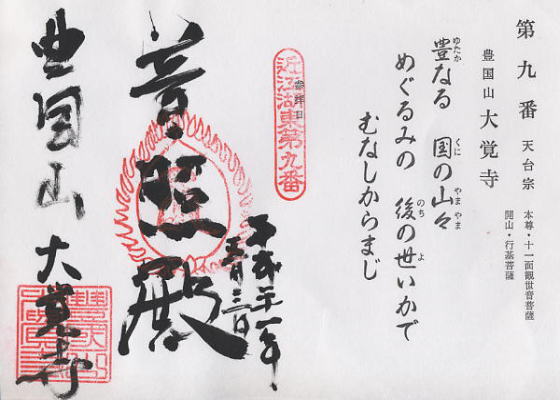 第九番 天台宗 本尊・十一面観世音菩薩
開山・行基菩薩
豊国山 大覚寺
豊なる 国の山々
ゆたか くに やまやま
めぐるみの 後の世いかで
のち よ
むなしからまじ
近江湖東第九番
参拝日
平成二十一年
五月三日
普照殿
豊国山 大覚寺